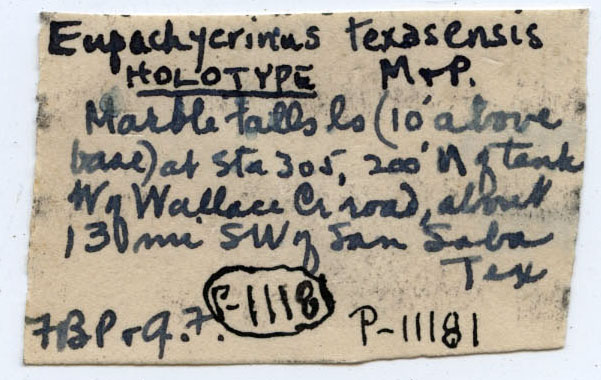 Eupachycrinus texasensis
HOLOTYPE M+P.
Marble Falls ls (10' above
base) at Sta 305, 200' N of tank
W of Wallace Cr road, about
13 mi SW of San Saba
Tex
P-11181
FBP + P-11181